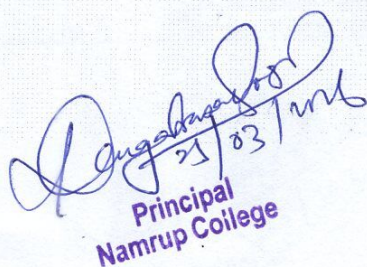 21/03/2016
Principal
Namrup College